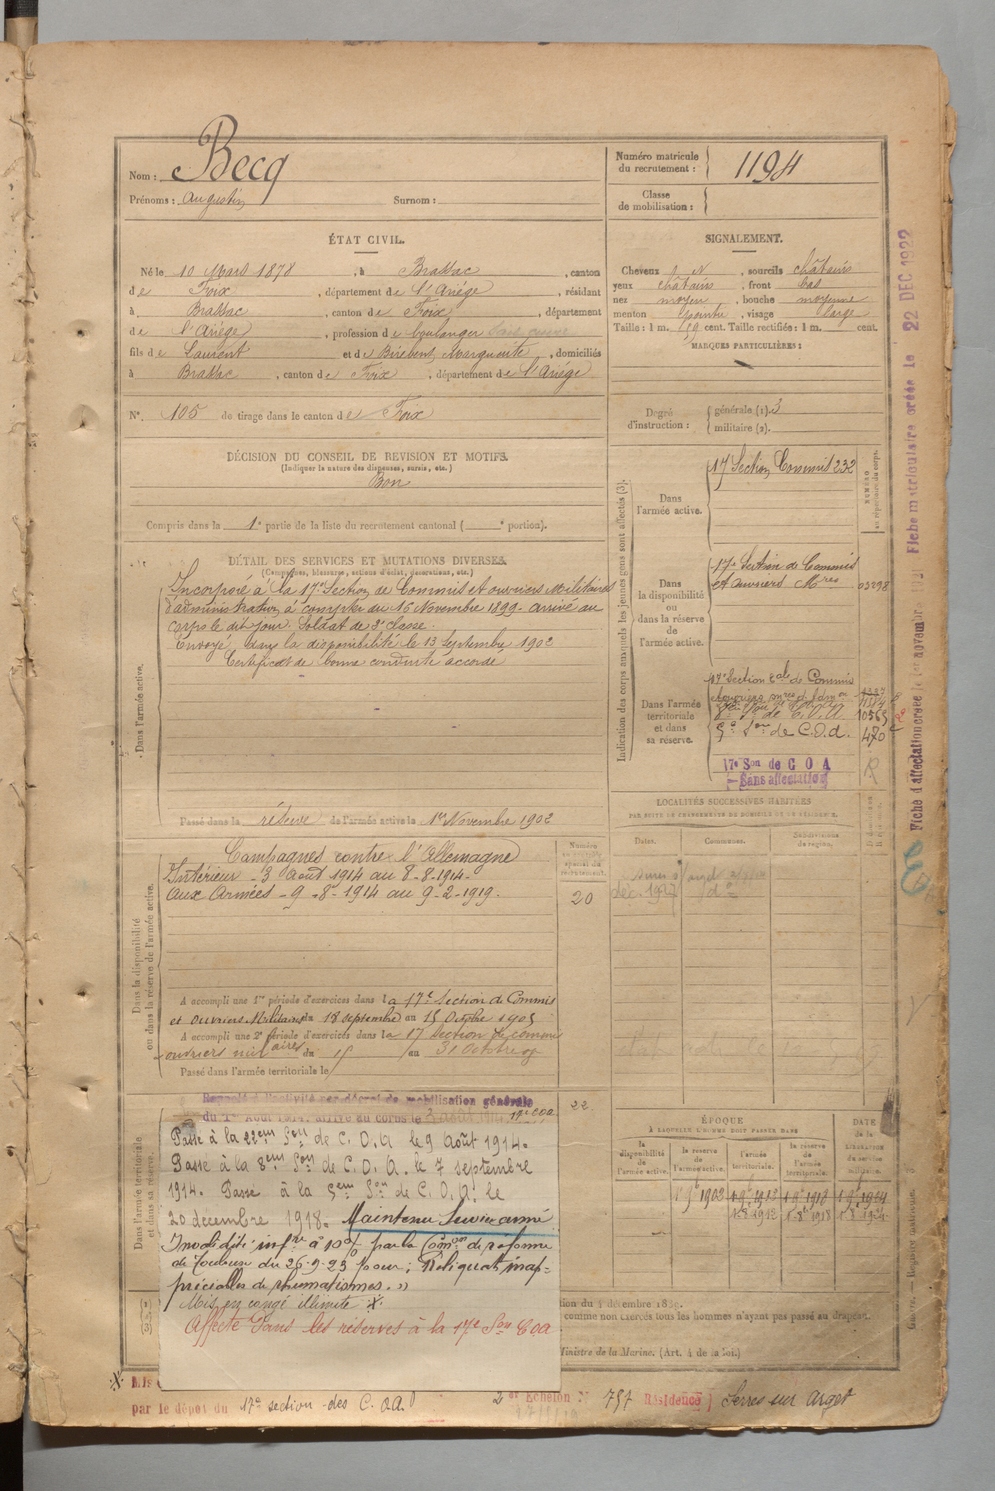 Nom : Becq
Prénoms : Augustin Surnom :
Numéro matricule du recrutement : 1194
Classe de mobilisation :
ÉTAT CIVIL.
Né le 10 Mars 1878, à Brassac, canton
de Foix, département de l'Ariège, résidant
à Brassac, canton de Foix, département
de l'Ariège, profession de boulanger
fils de Laurent et de Birebent Marguerite, domiciliés
à Brassac, canton de Foix, département de l'Ariège
N° 105 de tirage dans le canton de Foix
SIGNALEMENT.
Cheveux , sourcils châtains
yeux châtains, front bas
nez moyen, bouche moyenne
menton pointu, visage large
Taille : 1 m. 59 cent. Taille rectifiée : 1 m. cent.
MARQUES PARTICULIÈRES :
Degré d'instruction : générale (1). 3
militaire (2).
DÉCISION DU CONSEIL DE REVISION ET MOTIFS.
(Indiquer la nature des dispenses, sursis, etc.)
Bon
Compris dans la 1e partie de la liste du recrutement cantonal ( e portion).
DÉTAIL DES SERVICES ET MUTATIONS DIVERSES.
(Campagnes, blessures, actions d'éclat, décorations, etc.)
Dans l'armée active.
Incorporé à la 17e Section de Commis et ouvriers Militaires
d'administration à compter du 16 Novembre 1899. arrivé au
corps le dit jour. Soldat de 2e classe.
Envoyé dans la disponibilité le 13 Septembre 1902
Certificat de bonne conduite accordé
Passé dans la réserve de l'armée active le 1er Novembre 1902
Indication des corps auxquels les jeunes gens sont affectés (3).
NUMÉRO au répertoire du corps.
Dans l'armée active. 17 Section Commis 232
Dans la disponibilité ou dans la réserve de l'armée active. 17e Section de Commis
et ouvriers Mres 03298
Dans l'armée territoriale et dans sa réserve. 17e Section tale de Commis
8e Son de C.O.A. 10565
5e Son de C.O.A. 470
17e Son de C O A
Sans affectation
R
LOCALITÉS SUCCESSIVES HABITÉES
PAR SUITE DE CHANGEMENTS DE DOMICILE OU DE RÉSIDENCE.
Dates. Communes. Subdivisions de région.
Dans la disponibilité ou dans la réserve de l'armée active.
Campagnes contre l'Allemagne
Intérieur - 3 Août 1914 au 8-8-1914.
Aux Armées - 9-8-1914 au 9-2-1919.
20
A accompli une 1re période d'exercices dans la 17e Section de Commis
et ouvriers Militaires du 18 septembre au 15 Octobre 1905
A accompli une 2e période d'exercices dans la 17 Section de commis
ouvriers militaires du 15 au 31 Octobre
Passé dans l'armée territoriale le
Dans l'armée territoriale et dans sa réserve.
Rappelé à l'activité par décret de mobilisation générale
du 1er Août 1914, arrivé au corps le
22
Passé à la 22ème Son de C.O.A le 9 août 1914.
Passé à la 8ème Son de C.O.A. le 7 septembre
1914. Passé à la 5ème Son de C.O.A. le
20 décembre 1918. Maintenu Service armé
Invalidité infre à 10% par la Comon de réforme
de Toulouse du 26-9-23 pour ; "Reliquat inap-
préciables de rhumatismes."
Mis en congé illimité
Affecté dans les réserves à la 17e Son COA
ÉPOQUE
À LAQUELLE L'HOMME DOIT PASSER DANS
la disponibilité de l'armée active. la réserve de l'armée active. l'armée territoriale. la réserve de l'armée territoriale.
DATE de la LIBÉRATION du service militaire.
comme non exercés tous les hommes n'ayant pas passé au drapeau.
Ministre de la Marine. (Art. 4 de la loi.)
par le dépôt du 17e section des C.O.A
2 er Echelon N° 757 Résidence Serres sur Arget
Fiche matriculaire créée Le 22 DEC 1922